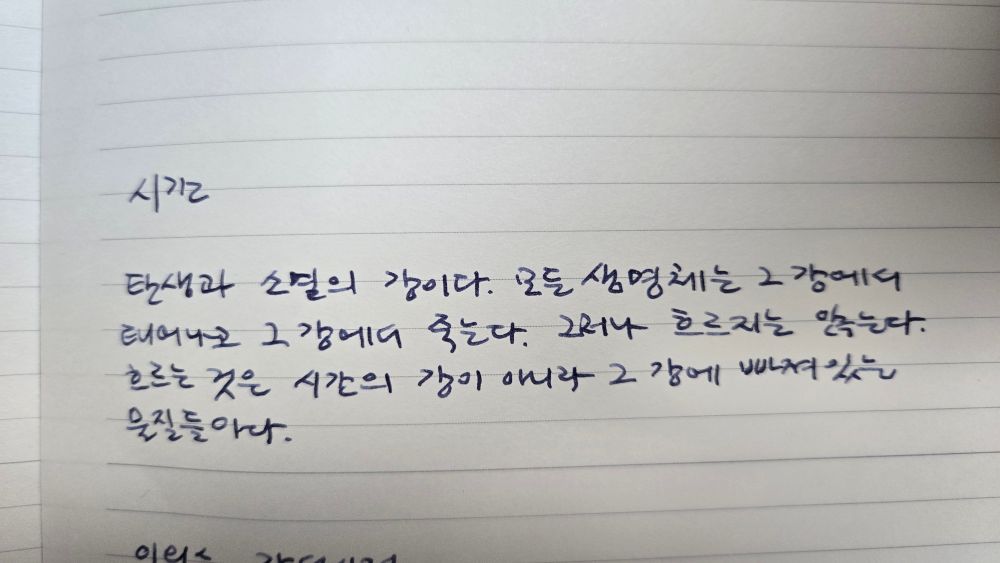 시간
탄생과 소멸의 강이다. 모든 생명체는 그 강에서
태어나고 그 강에서 죽는다. 그러나 흐르지는 않는다.
흐르는 것은 시간의 강이 아니라 그 강에 빠져있는
물질들이다.